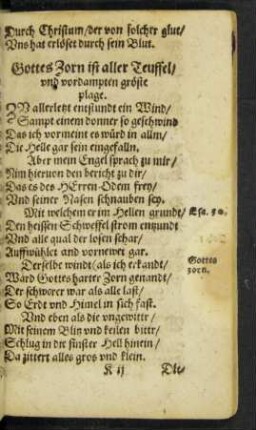 Durch Christum/der von solcher glut/
Vns hat erlöset durch sein Blut.
Gottes Zorn ist aller Teuffel/
vnd vordampten gröste
plage.
IN allerletzt entstundt ein Wind/
Sampt einem donner so geschwind
Das ich vormeint es würd in allm/
Die Helle gar sein eingefalln.
Aber mein Engel sprach zu mir/
Nim hiervon den bericht zu dir/
Das es des HErren Odem frey/
Vnd seiner Nasen schnauben sey.
Mit welchem er im Hellen grundt/ Esa. 30.
Den heissen Schweffel strom enzundt
Vnd alle qual der losen schar/
Auffwühlet and vornewet gar.
Derselbe windt (als ich erkandt/ Gottes
Ward Gottes harter Zorn genandt/ zorn.
Der schwerer war als alle last/
So Erdt vnd Himel in sich fast.
Vnd eben als die vngewittr/
Mit seinem Blin vnd keilen bittr/
Schlug in dir finster Hell hinein/
Da zittert alles gros vnd klein.
K ij Die/